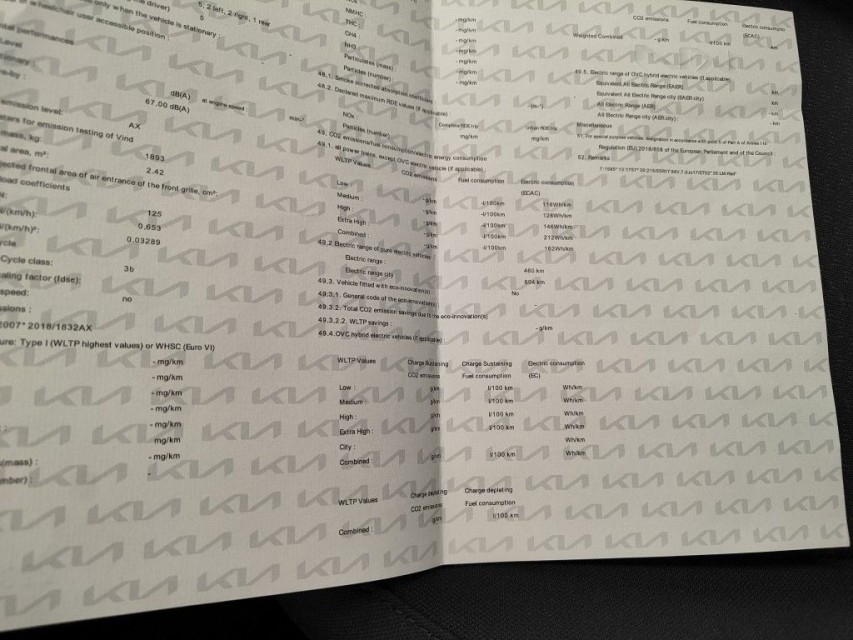 only when the vehicle is stationary :
user accessible position :
5, 2 left, 2 right, 1 rear
5
dB(A) at engine speed
67.00 dB(A)
min-1
emission level: AX
for emission testing of Vind
mass, kg: 1893
al area, m²: 2.42
jected frontal area of air entrance of the front grille, cm²:
load coefficients
125
(km/h): 0.653
(km/h)²: 0.03289
Cycle class: 3b
aling factor (fdsc):
speed: no
ssions :
2018/1832AX
ure: Type I (WLTP highest values) or WHSC (Euro VI)
- mg/km
- mg/km
- mg/km
- mg/km
- mg/km
mg/km
(mass) : - mg/km
mber) : -
NMHC : - mg/km
THC : - mg/km
CH4 : - mg/km
NH3 : - mg/km
Particulates (mass) - mg/km
Particles (number) - mg/km
48.1. Smoke corrected absorption coefficient
48.2. Declared maximum RDE values (if applicable)
NOx : mg/km mg/km
Particles (number)
49. CO2 emissions/fuel consumption/electric energy consumption
49.1. all power trains, except OVC electric vehicle (if applicable)
WLTP Values CO2 emissions Fuel consumption Electric consumption
(ECAC)
Low : -g/km -l/100km 116Wh/km
Medium : -g/km -l/100km 128Wh/km
High : -g/km -l/100km 146Wh/km
Extra High : -g/km -l/100km 212Wh/km
Combined : -g/km -l/100km 162Wh/km
49.2 Electric range of pure electric vehicles
Electric range : 460 km
Electric range city 604 km
49.3. Vehicle fitted with eco-innovation(s) No
49.3.1. General code of the eco-innovations -
49.3.2. Total CO2 emission savings due to the eco-innovation(s)
49.3.2.2. WLTP savings : - g/km
49.4.OVC hybrid electric vehicles (if applicable)
WLTP Values Charge Sustaining Charge Sustaining Electric consumption
CO2 emissions Fuel consumption (EC)
Low : g/km l/100 km Wh/km
Medium : g/km l/100 km Wh/km
High : g/km l/100 km Wh/km
Extra High : g/km l/100 km Wh/km
City : Wh/km
Combined : g/km l/100 km Wh/km
WLTP Values Charge depleting Charge depleting
CO2 emissions Fuel consumption
Combined : g/km l/100 km
CO2 emissions Fuel consumption Electric consumption
(ECAC)
Weighted Combined - g/km l/100 km km
49.5. Electric range of OVC hybrid electric vehicles (if applicable)
Equivalent All Electric Range (EAER) km
Equivalent All Electric Range city (EAER city) km
All Electric Range (AER) km
All Electric Range city (AER city) : - km
Miscellaneous
51. For special purpose vehicles: designation in accordance with point 5 of Part A of Annex I to
Regulation (EU) 2018/858 of the European Parliament and of the Council :
52. Remarks